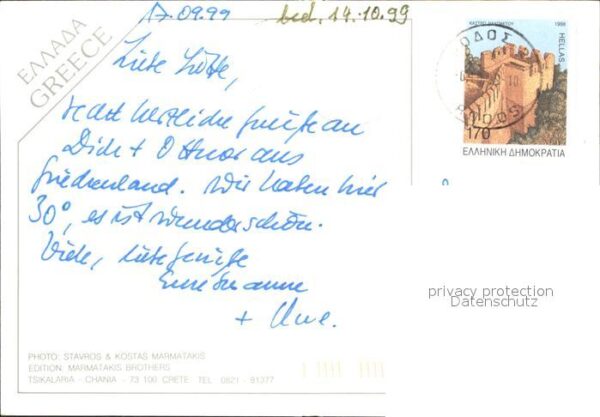 17.09.99
bed. 14.10.99
ΕΛΛΑΔΑ
GREECE
Liebe Lotte,
recht herzliche Grüße an
Dich + Ottmar aus
Griechenland. Wir haben hier
30°, es ist wunderschön.
Viele, liebe Grüße
+ Uwe.
1998
HELLAS
ΡΟΔΟΣ
RODOS
170
ΕΛΛΗΝΙΚΗ ΔΗΜΟΚΡΑΤΙΑ
privacy protection
Datenschutz
PHOTO: STAVROS & KOSTAS MARMATAKIS
EDITION: MARMATAKIS BROTHERS
TSIKALARIA - CHANIA - 73 100 CRETE TEL 0821 - 91377